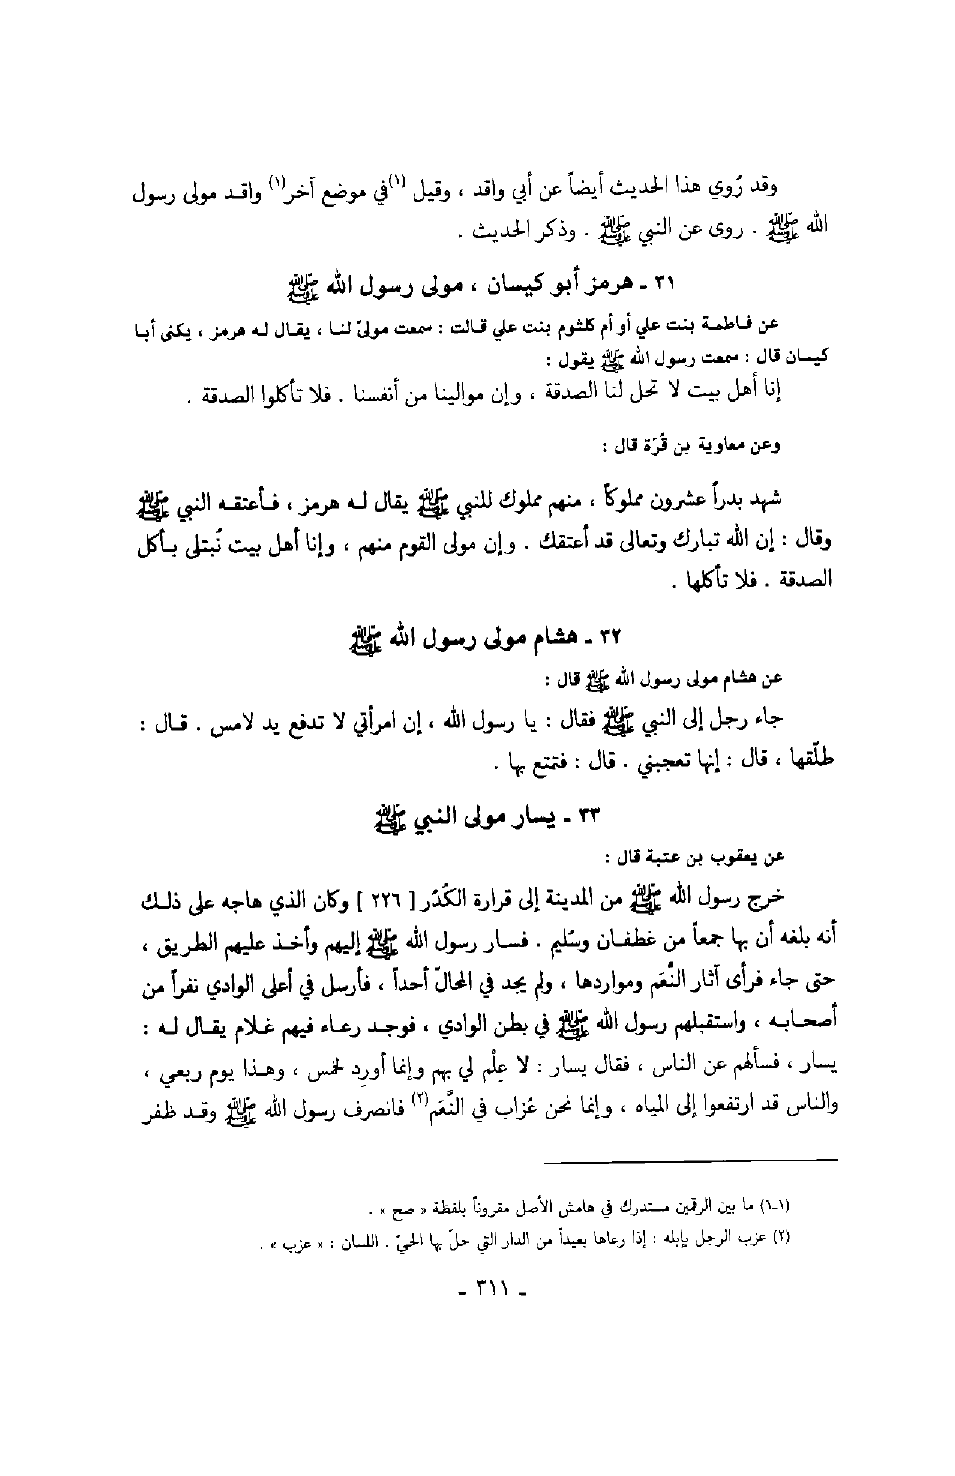 وقد رُوي هذا الحديث أيضاً عن أبي واقد ، وقيل (١)في موضع آخر(١) واقد مولى رسول
الله ﷺ . روى عن النبي ﷺ . وذكر الحديث .
٣١ ـ هرمز أبو كيسان ، مولى رسول الله ﷺ
عن فاطمة بنت علي أو أم كلثوم بنت علي قالت : سمعت مولىً لنا ، يقال له هرمز ، يكنى أبا
كيسان قال : سمعت رسول الله ﷺ يقول :
إنا أهل بيت لا تحل لنا الصدقة ، وإن موالينا من أنفسنا . فلا تأكلوا الصدقة .
وعن معاوية بن قُرّة قال :
شهد بدراً عشرون مملوكاً ، منهم مملوك للنبي ﷺ يقال له هرمز ، فأعتقه النبي ﷺ
وقال : إن الله تبارك وتعالى قد أعتقك . وإن مولى القوم منهم ، وإنا أهل بيت نُبتلى بأكل
الصدقة . فلا تأكلها .
٣٢ ـ هشام مولى رسول الله ﷺ
عن هشام مولى رسول الله ﷺ قال :
جاء رجل إلى النبي ﷺ فقال : يا رسول الله ، إن امرأتي لا تدفع يد لامس . قال :
طلّقها ، قال : إنها تعجبني . قال : فتمتع بها .
٣٣ ـ يسار مولى النبي ﷺ
عن يعقوب بن عتبة قال :
خرج رسول الله ﷺ من المدينة إلى قرارة الكُدْر [ ٢٢٦ ] وكان الذي هاجه على ذلك
أنه بلغه أن بها جمعاً من غطفان وسُليم . فسار رسول الله ﷺ إليهم وأخذ عليهم الطريق ،
حتى جاء فرأى آثار النَّعَم ومواردها ، ولم يجد في المحالّ أحداً ، فأرسل في أعلى الوادي نفراً من
أصحابه ، واستقبلهم رسول الله ﷺ في بطن الوادي ، فوجد رعاء فيهم غلام يقال له :
يسار ، فسألهم عن الناس ، فقال يسار : لا عِلْم لي بهم وإنما أورِد لخمس ، وهذا يوم ربعي ،
والناس قد ارتفعوا إلى المياه ، وإنما نحن عُزاب في النَّعَم(٢) فانصرف رسول الله ﷺ وقد ظفر
(١-١) ما بين الرقمين مستدرك في هامش الأصل مقروناً بلفظة « صح » .
(٢) عزب الرجل بإبله : إذا رعاها بعيداً من الدار التي حلّ بها الحيّ . اللسان : « عزب » .
ـ ٣١١ ـ